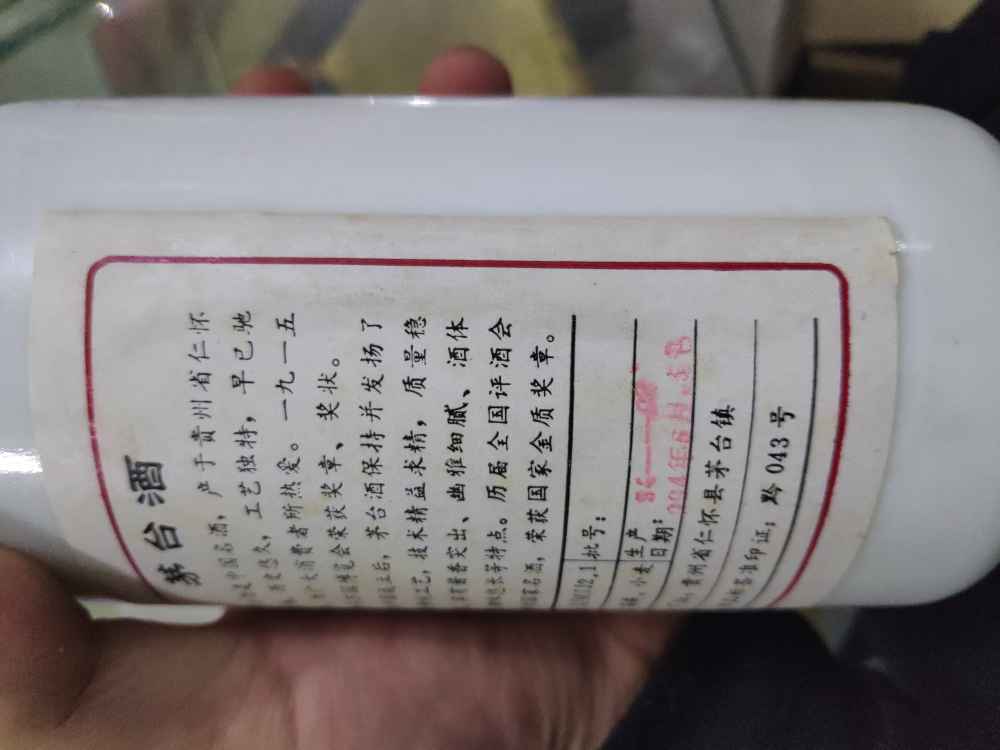 茅台酒
中国名酒，产于贵州省仁怀
悠久，工艺独特，早已驰
广大消费者所热爱。一九一五
博览会荣获奖章、奖状。
后，茅台酒保持并发扬了
工艺，技术精益求精，质量稳
酱香突出、幽雅细腻、酒体
悠长等特点。历届全国评酒会
国家名酒，荣获国家金质奖章。
批号：
小麦 生产日期：
994年6月 日
贵州省仁怀县茅台镇
准印证：黔043号